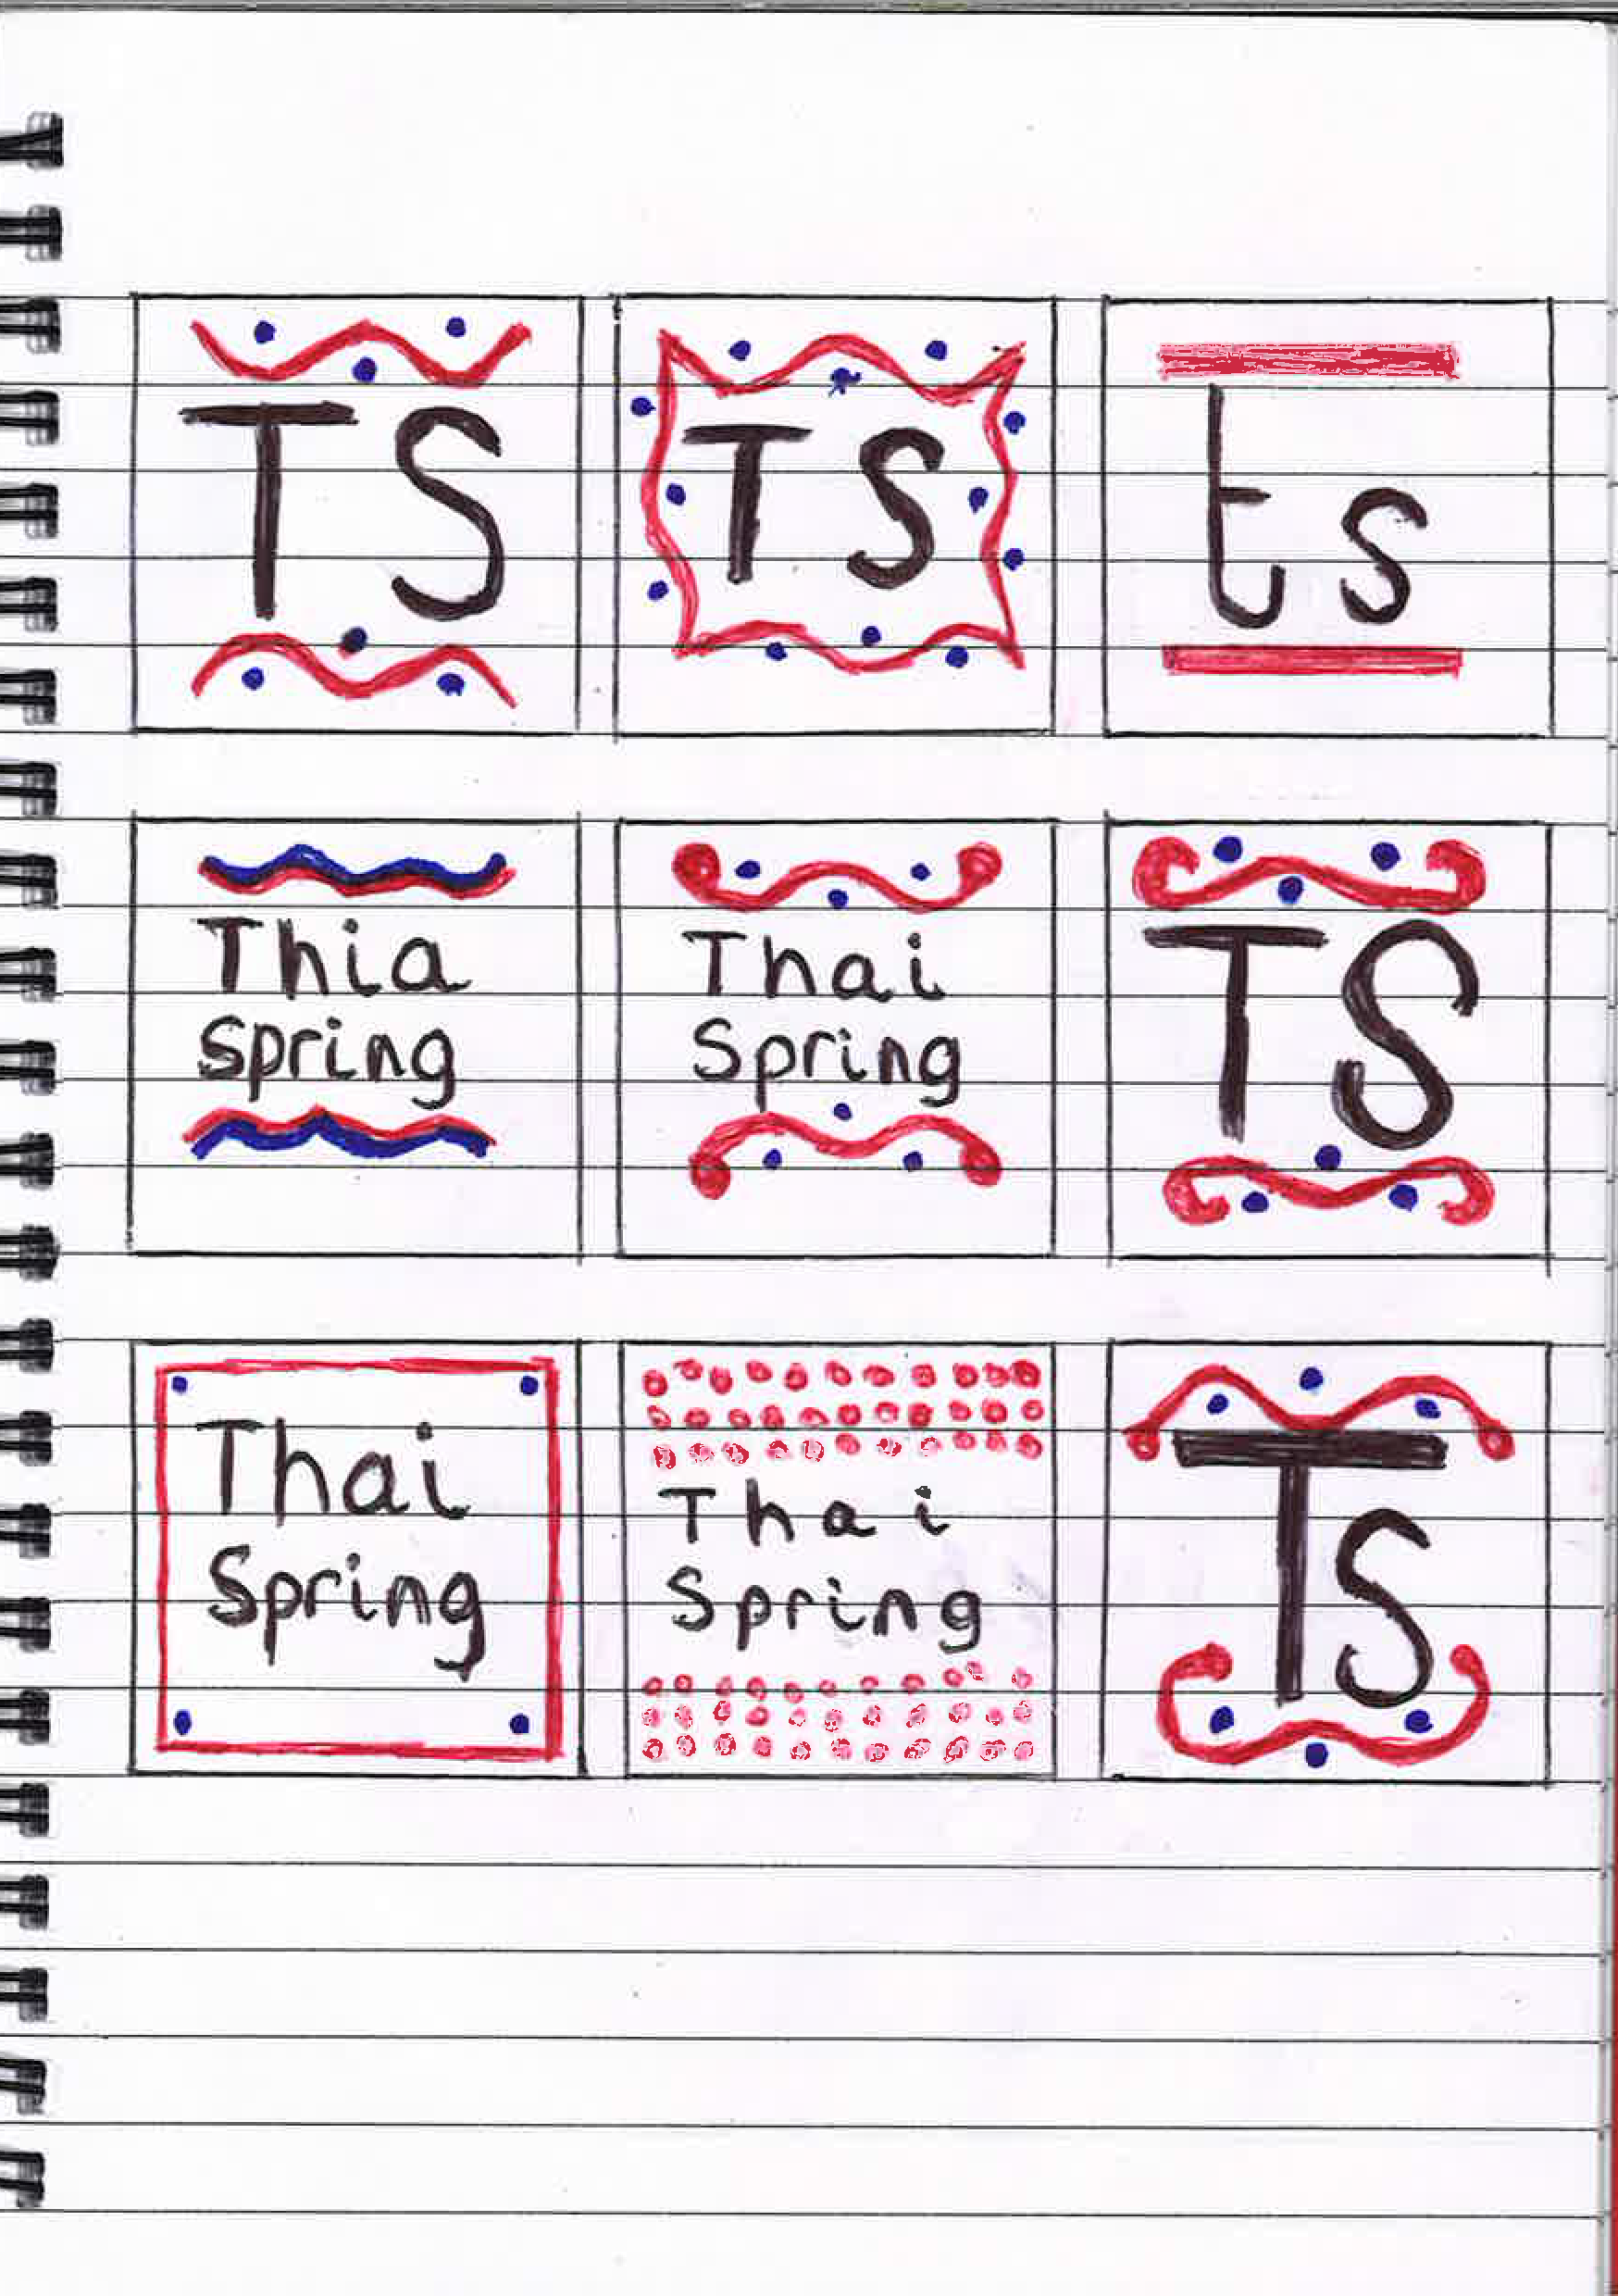 TS
TS
ts
Thia
Spring
Thai
Spring
TS
Thai
Spring
Thai
Spring
Ts